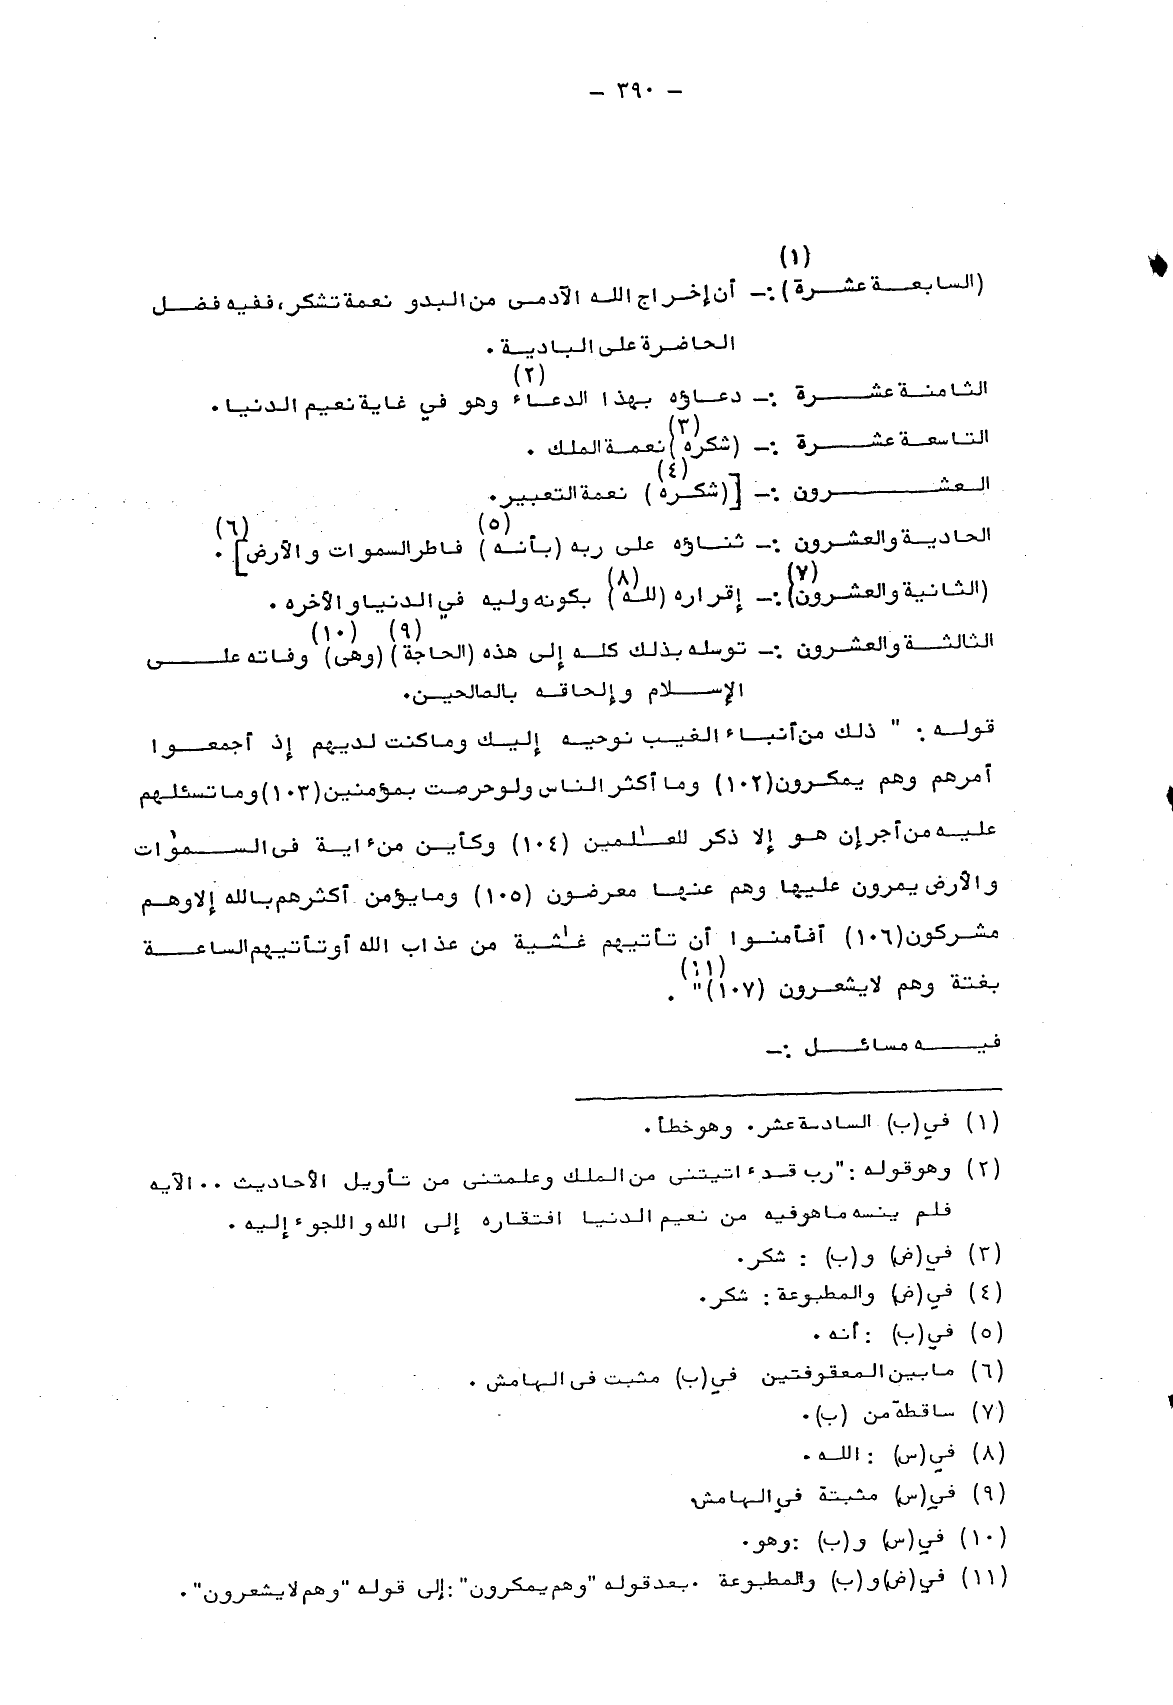 - ٣٩٠ -
(١)
(السابعة عشرة) :- أن إخراج الله الآدمى من البدو نعمة تشكر، ففيه فضل
الحاضرة على البادية .
(٢)
الثامنة عشرة :- دعاؤه بهذا الدعاء وهو في غاية نعيم الدنيا .
(٣)
التاسعة عشرة :- (شكره) نعمة الملك .
(٤)
العشرون :- [(شكره) نعمة التعبير.
(٥) (٦)
الحادية والعشرون :- ثناؤه على ربه (بأنه) فاطر السموات والأرض] .
(٧) (٨)
(الثانية والعشرون) :- إقراره (لله) بكونه وليه في الدنيا والآخره .
(٩) (١٠)
الثالثة والعشرون :- توسله بذلك كله إلى هذه (الحاجة) (وهى) وفاته على
الإسلام وإلحاقه بالصالحين.
قوله : " ذلك من أنباء الغيب نوحيه إليك وماكنت لديهم إذ أجمعوا
أمرهم وهم يمكرون(١٠٢) وما أكثر الناس ولوحرصت بمؤمنين(١٠٣)وماتسئلهم
عليه من أجر إن هو إلا ذكر للعٰلمين (١٠٤) وكأين من ءاية فى السمٰوٰت
والأرض يمرون عليها وهم عنها معرضون (١٠٥) ومايؤمن أكثرهم بالله إلا وهم
مشركون(١٠٦) أفأمنوا أن تأتيهم غٰشية من عذاب الله أو تأتيهم الساعة
(١١)
بغتة وهم لايشعرون (١٠٧)" .
فيه مسائل :-
(١) في(ب) السادسة عشر. وهو خطأ .
(٢) وهو قوله :"رب قد ءاتيتنى من الملك وعلمتنى من تأويل الأحاديث .. الآيه
فلم ينسه ماهو فيه من نعيم الدنيا افتقاره إلى الله واللجوء إليه .
(٣) في(ض) و(ب) : شكر.
(٤) في(ض) والمطبوعة : شكر.
(٥) في(ب) : أنه .
(٦) مابين المعقوفتين في(ب) مثبت فى الهامش .
(٧) ساقطة من (ب).
(٨) في(س) : الله .
(٩) في(س) مثبتة في الهامش
(١٠) في(س) و(ب) :وهو.
(١١) في(ض)و(ب) والمطبوعة .بعد قوله "وهم يمكرون":إلى قوله "وهم لايشعرون".